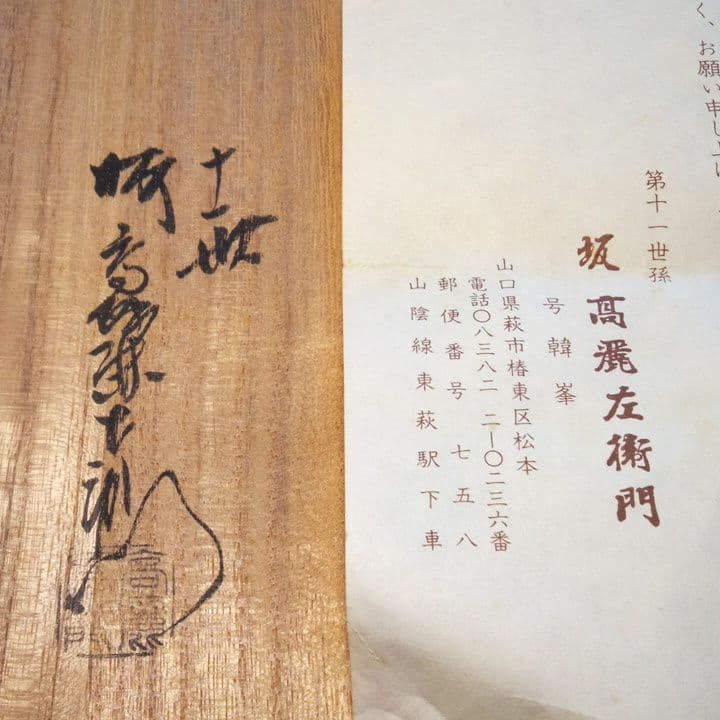 く、お願い申し上げ
第十一世孫
坂高麗左衛門
号韓峯
山口県萩市椿東区松本
電話〇八三八二 二―〇二三六番
郵便番号 七五八
山陰線東萩駅下車
十一世
坂高麗左衛門